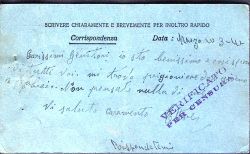 SCRIVERE CHIARAMENTE E BREVEMENTE PER INOLTRO RAPIDO
Corrispondenza Data: Marzo 3-42
Carissimi Genitori io sto benissimo e così spero
di tutti voi. mi trovo prigioniero
Non pensate nulla di
Vi saluto caramente
VERIFICATO
PER CENSURA
Rispondetemi